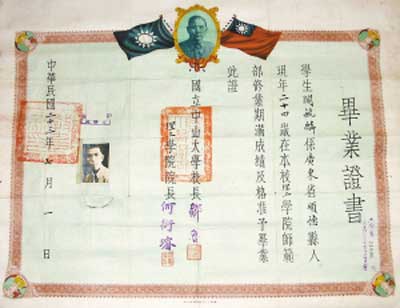 畢業證書
學生毓麟係廣東省順德縣人
現年二十四歲在本校理學院師範
部修業期滿成績及格准予畢業
此證
國立中山大學校長鄒魯
學院院長何衍璿
中華民國二十三年月一日